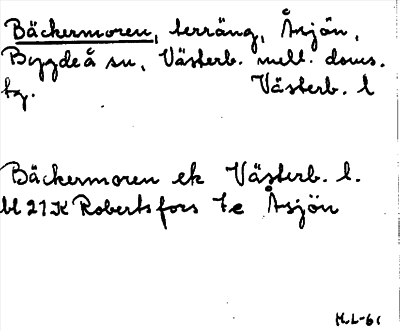 Bäckermoren, terräng, Åsjön,
Bygdeå sn, Västerb. mell. doms.
tg. Västerb. l
Bäckermoren ek Västerb. l.
bl 21K Robertsfors 7e Åsjön
H.L-61